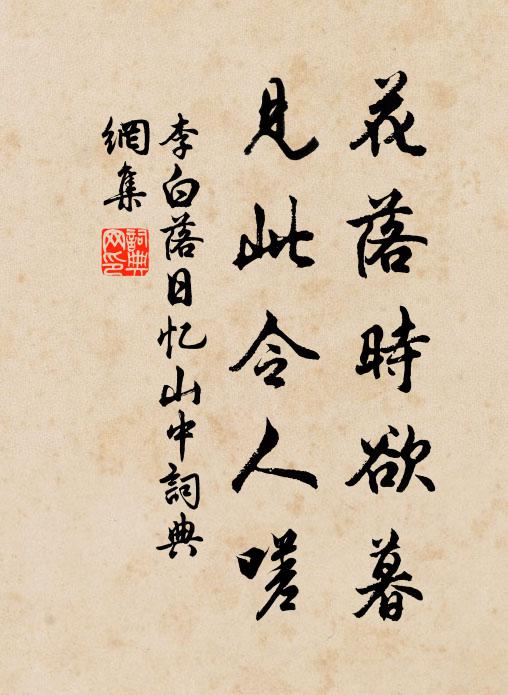 花落時欲暮
見此令人嗟
李白落日忆山中詞典
網集
詞典網印